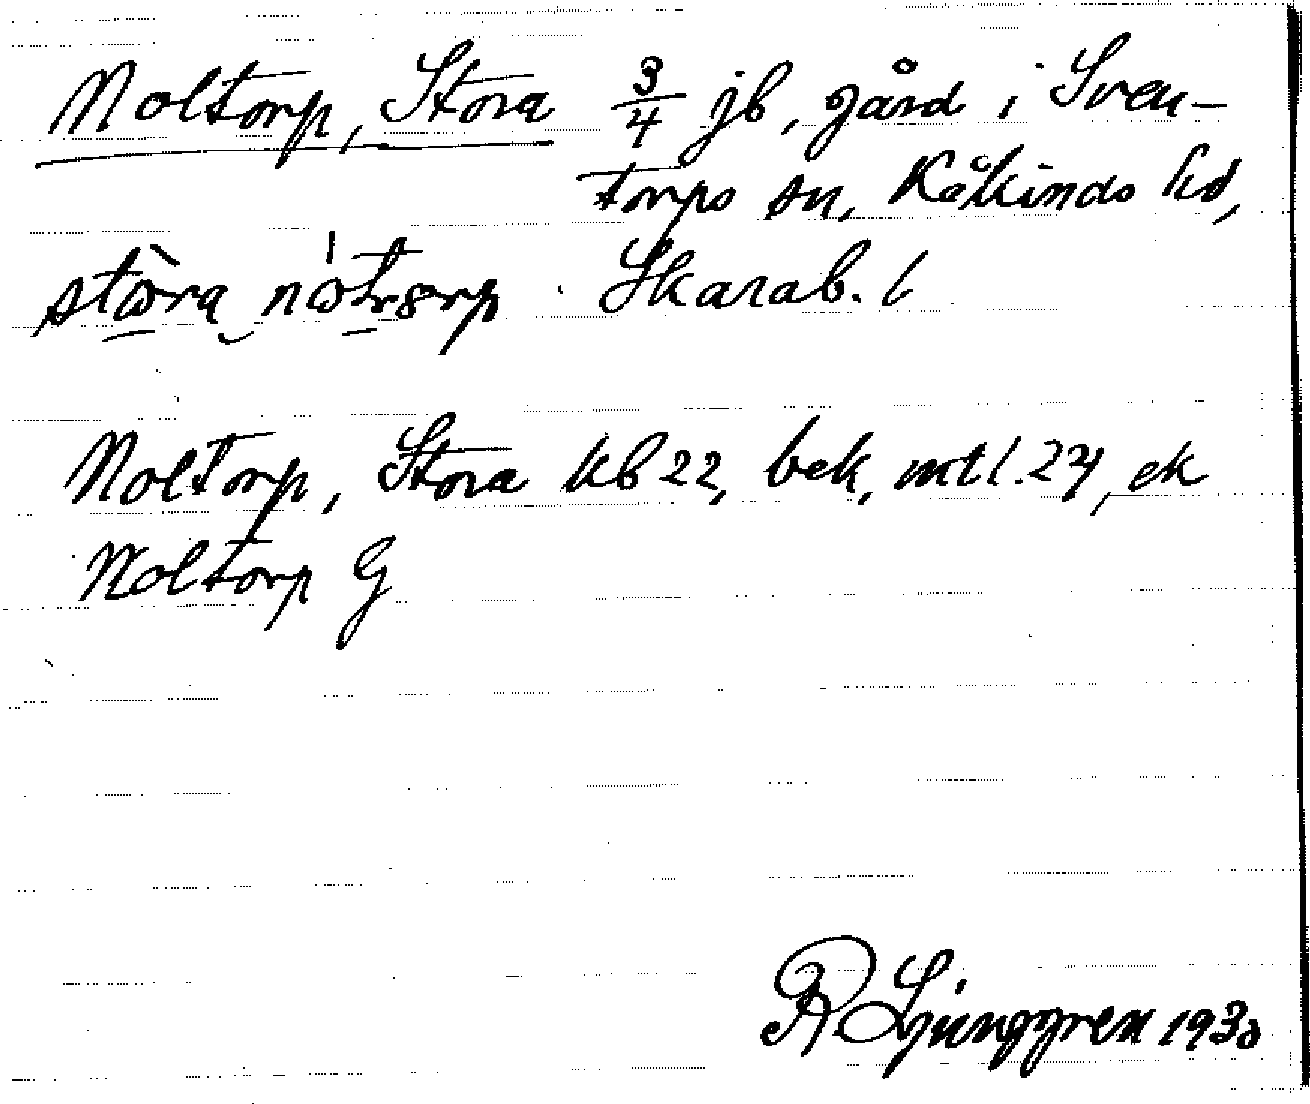 Noltorp, Stora 3/4 jb, gård i Sven-
torps sn, Kåkinds hd,
Skarab. l
Noltorp, Stora kb 22, bek, mtl. 27, ek
Noltorp G
R Ljunggren 1930